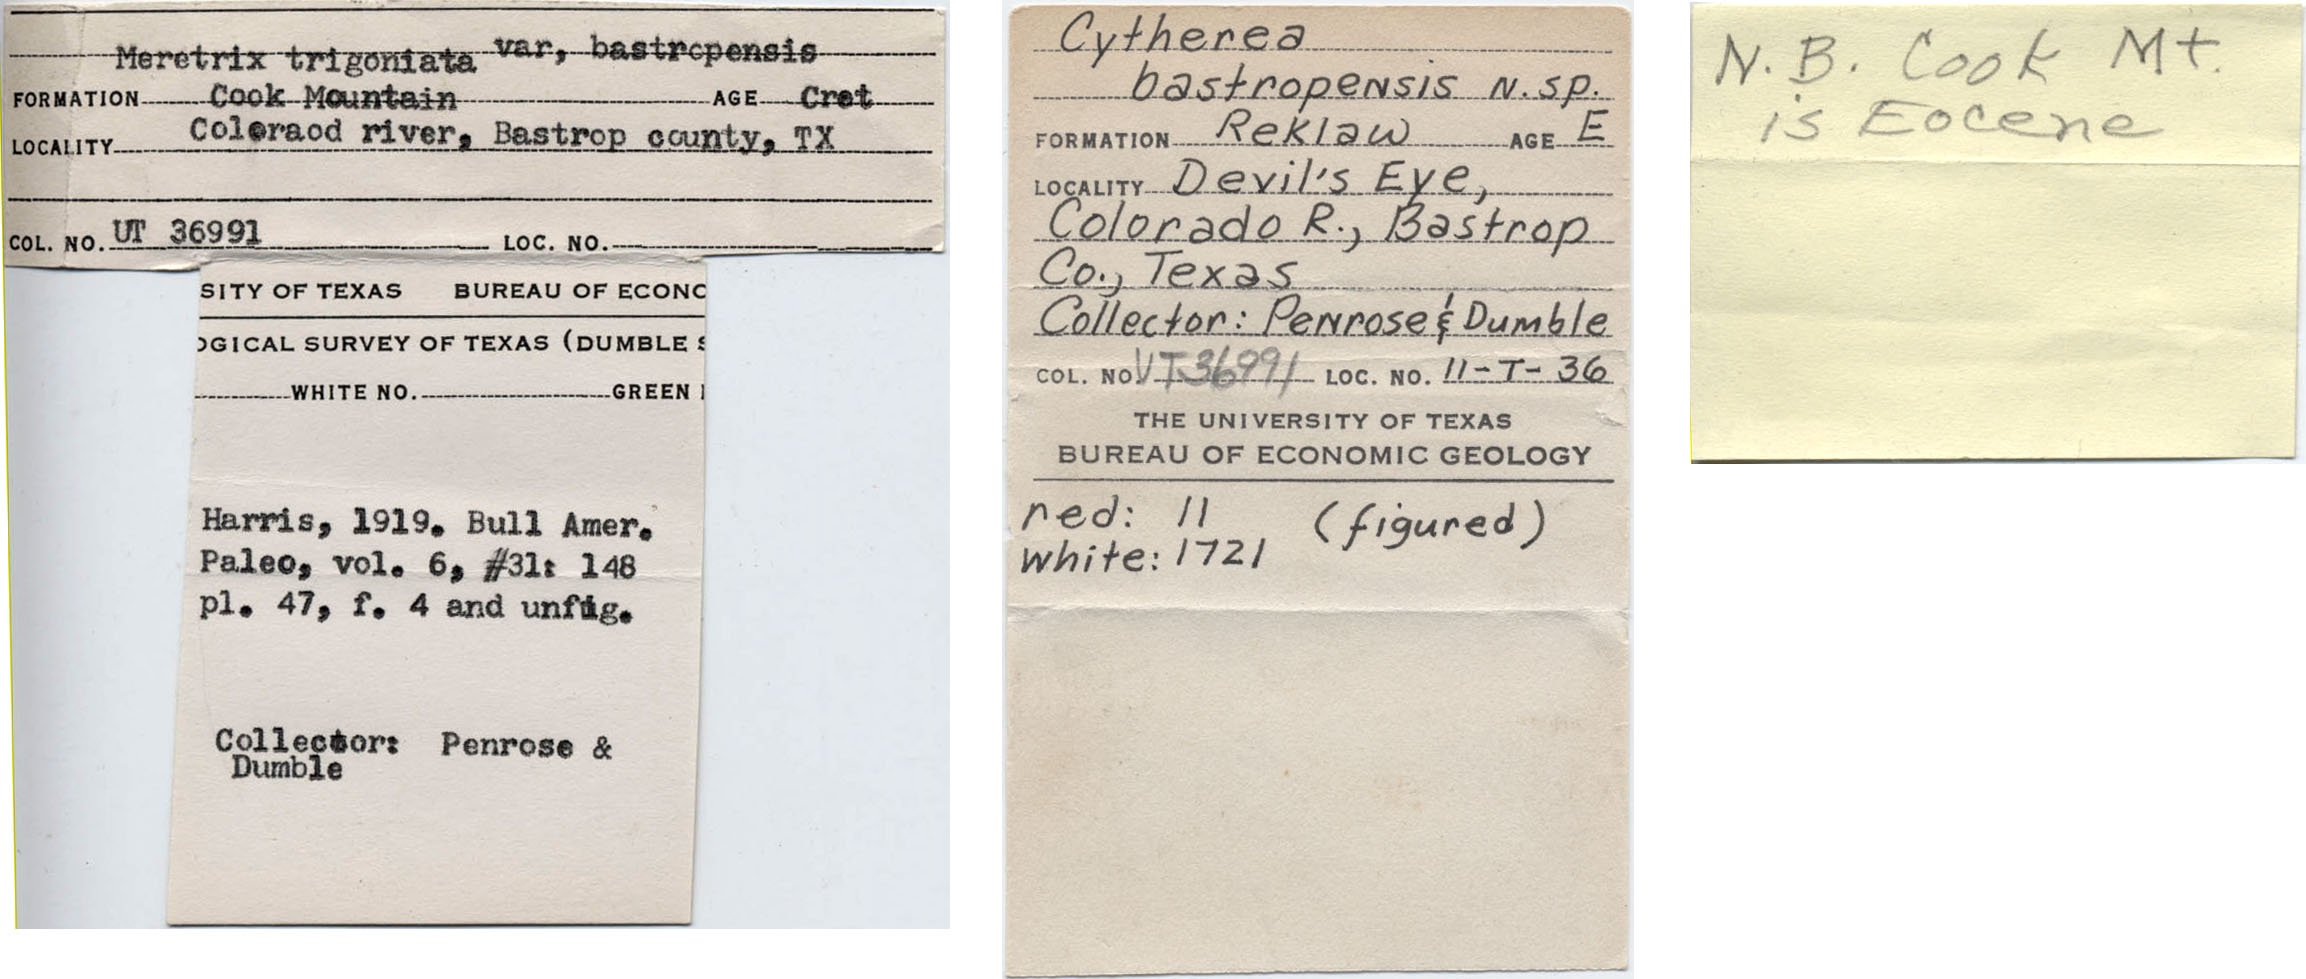 Meretrix trigoniata var, bastropensis
FORMATION Cook Mountain AGE Cret
LOCALITY Coloraod river, Bastrop county, TX
COL. NO. UT 36991 LOC. NO.
SITY OF TEXAS BUREAU OF ECONO
OGICAL SURVEY OF TEXAS (DUMBLE S
WHITE NO. GREEN
Harris, 1919. Bull Amer.
Paleo, vol. 6, #31: 148
pl. 47, f. 4 and unfig.
Collector: Penrose &
Dumble
Cytherea
bastropensis N. sp.
FORMATION Reklaw AGE E
LOCALITY Devil's Eye,
Colorado R., Bastrop
Co., Texas
Collector: Penrose & Dumble
COL. NO. UT36991 LOC. NO. 11-T-36
THE UNIVERSITY OF TEXAS
BUREAU OF ECONOMIC GEOLOGY
red: 11 (figured)
white: 1721
N.B. Cook Mt.
is Eocene